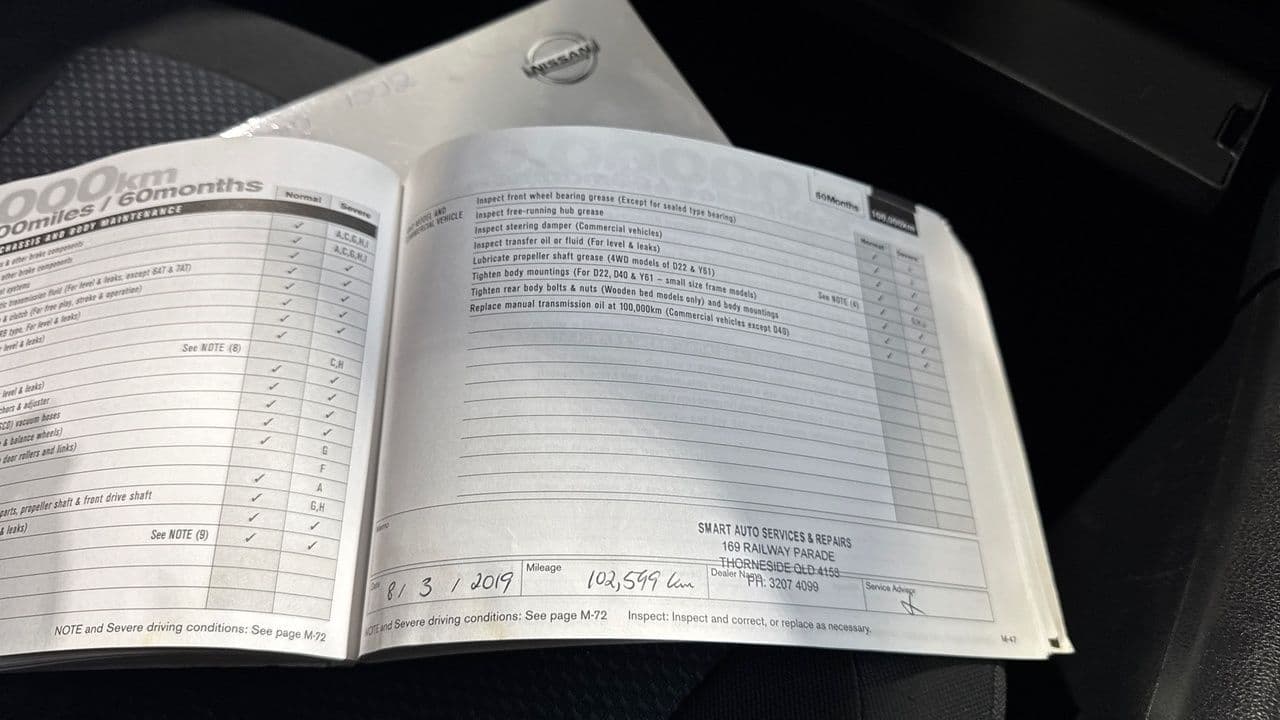 NISSAN
000km
00miles / 60months
Normal
Severe
CHASSIS AND BODY MAINTENANCE
& other brake components
A,C,G,H,I
other brake components
A,C,G,H,I
systems
transmission fluid (For level & leaks, except 6AT & 7AT)
& clutch (For free play, stroke & operation)
type, For level & leaks)
level & leaks)
See NOTE (8)
C,H
level & leaks)
& adjuster
vacuum hoses
& balance wheels)
G
door rollers and links)
F
A
G,H
parts, propeller shaft & front drive shaft
& leaks)
See NOTE (9)
NOTE and Severe driving conditions: See page M-72
60Months
100,000km
Normal
Severe
MODEL AND
VEHICLE
Inspect front wheel bearing grease (Except for sealed type bearing)
Inspect free-running hub grease
Inspect steering damper (Commercial vehicles)
Inspect transfer oil or fluid (For level & leaks)
Lubricate propeller shaft grease (4WD models of D22 & Y61)
Tighten body mountings (For D22, D40 & Y61 – small size frame models)
See NOTE (6)
Tighten rear body bolts & nuts (Wooden bed models only) and body mountings
Replace manual transmission oil at 100,000km (Commercial vehicles except D40)
Memo
SMART AUTO SERVICES & REPAIRS
169 RAILWAY PARADE
THORNESIDE QLD 4158
PH: 3207 4099
8 / 3 / 2019
Mileage
102,599 km
Dealer Name
Service Advisor
NOTE and Severe driving conditions: See page M-72
Inspect: Inspect and correct, or replace as necessary.
M-47